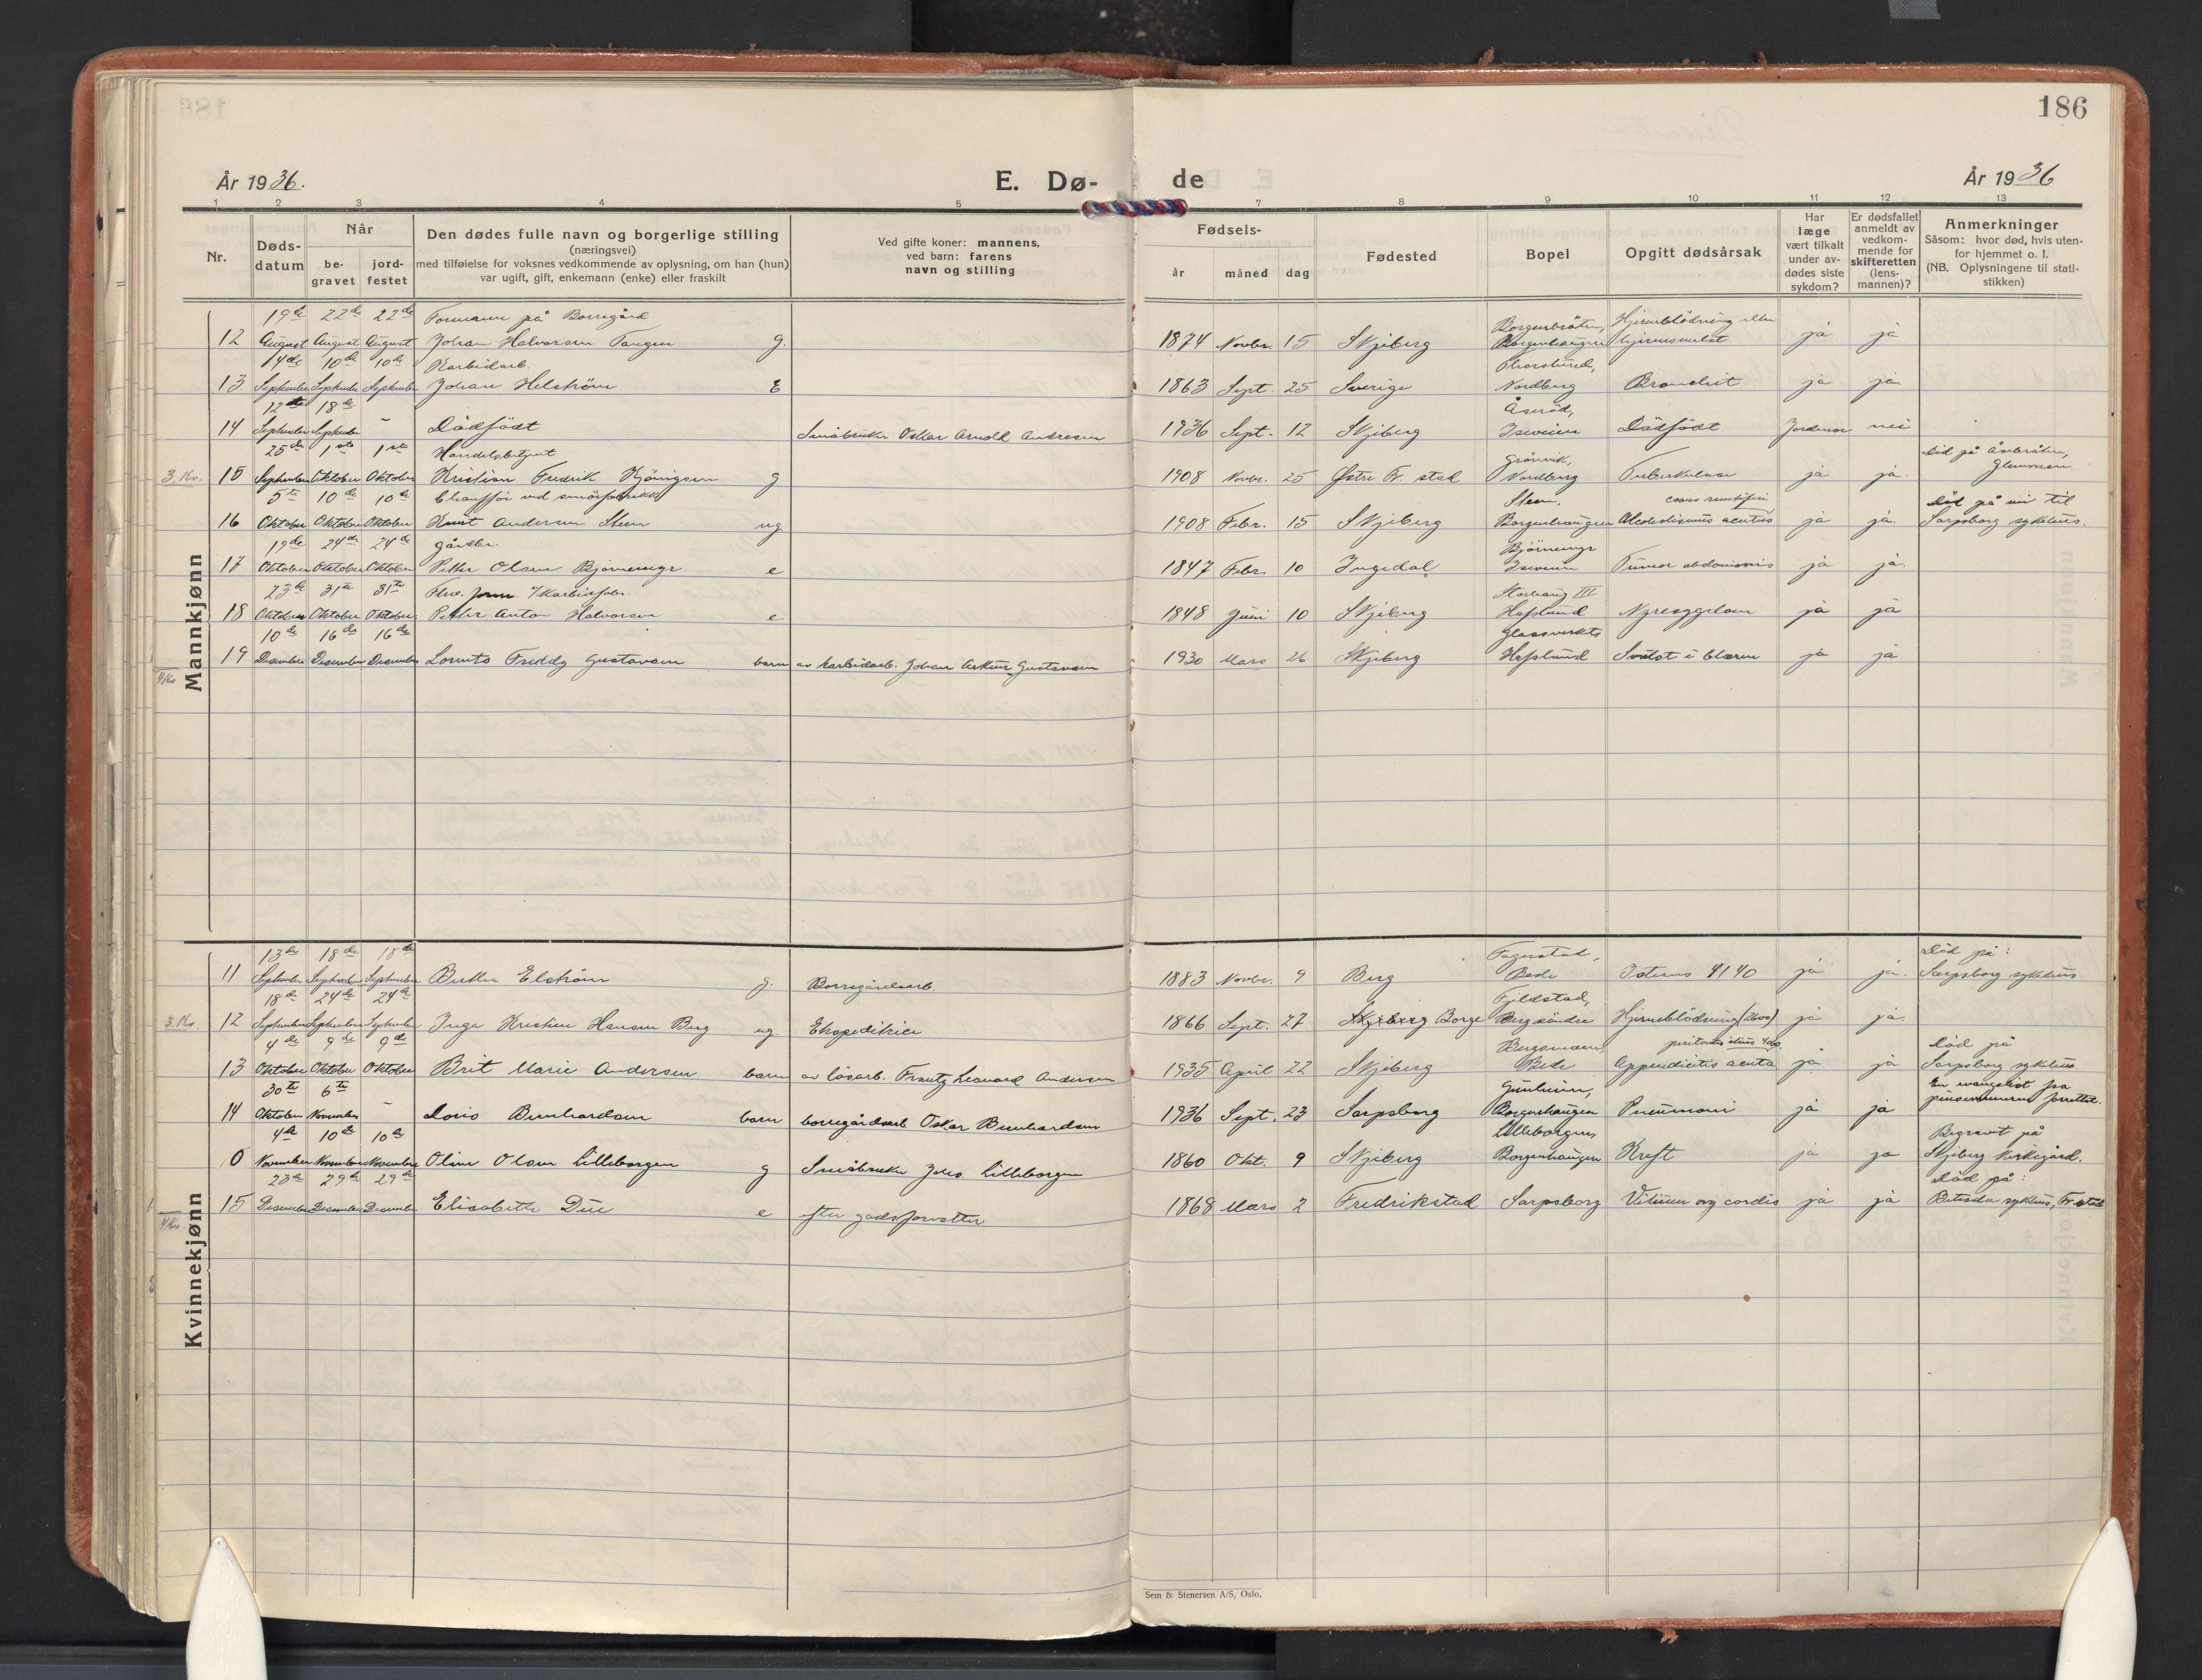 186
År 1936.
E. Dø-
de
År 1936
1 2 3 4 5 7 8 9 10 11 12 13
Nr.
Døds-
datum
Når
be-
gravet
jord-
festet
Den dødes fulle navn og borgerlige stilling
(næringsvei)
med tilføielse for voksnes vedkommende av oplysning, om han (hun)
var ugift, gift, enkemann (enke) eller fraskilt
Ved gifte koner: mannens,
ved barn: farens
navn og stilling
Fødsels-
år måned dag
Fødested
Bopel
Opgitt dødsårsak
Har
læge
vært tilkalt
under av-
dødes siste
sykdom?
Er dødsfallet
anmeldt av
vedkom-
mende for
skifteretten
(lens-
mannen)?
Anmerkninger
Såsom: hvor død, hvis uten-
for hjemmet o. l.
(NB. Oplysningene til stati-
stikken)
Mannkjønn
19de 22de 22de Formann på Borregård Borgenbråten, Hjerneblödning eller
12 August August August Johan Halvorsen Tangen g. 1874 Novbr. 15 Skjeberg Borgenhaugen hjernesvulst ja ja
14de 10de 10de Karbidarb.
13 September September September Johan Helström E 1863 Sept. 25 Sverige Nordberg Bronchit ja ja
12te 18de Åseröd,
14 September September - Dödfödt Småbruker Oskar Arnold Andresen 1936 Sept. 12 Skjeberg Iseveien Dödfödt Jordmor nei
25de 1ste 1ste Handelsbetjent Grönvik, Död på Åsebråten,
3. Kv. 15 September Oktober Oktober Kristian Fredrik Kjöningsen g 1908 Novbr. 25 Østre Fr. stad Nordberg Tuberkulose ja ja. Glemmen
5te 10de 10de Chaufför ved smörfabrikk Steen, Död på vei til
16 Oktober Oktober Oktober Knut Andersen Steen ug 1908 Febr. 15 Skjeberg Borgenhaugen Alcoholismus acutus ja ja. Sarpsborg sykehus.
19de 24de 24de Gårdbr. Björnemyr
17 Oktober Oktober Oktober Petter Olsen Björnemyr e 1847 Febr. 10 Ingedal Iseveien Tumor abdominis ja ja.
23de 31te 31te Fhv. form. v/Karbidfabr. Storhaug III
18 Oktober Oktober Oktober Petter Anton Halvorsen e 1848 Juni 10 Skjeberg Hafslund Nyresygdom ja ja
10de 16de 16de Glassverkets
4 Kv 19 Desember Desember Desember Lorents Freddy Gustavsen barn av karbidarb. Johan Artur Gustavsen 1930 Mars 26 Skjeberg Hafslund Svulst i blæren ja ja
Kvinnekjønn
13de 18de 18de Fagerstad, Död på:
11 September September September Berthe Elström g. Borregårdsarb. 1883 Novbr. 9 Berg Bede Icterus 4140 ja ja. Sarpsborg sykehus
18de 24de 24de Fjeldstad,
3. Kv. 12 September September September Inga Kristine Hansen Berg ug Ekspeditrice 1866 Sept. 27 Skjeberg Borge Berg söndre Hjerneblödning (2600) ja ja.
4de 9de 9de Död på
13 Oktober Oktober Oktober Brit Marie Andersen barn av lösarb. Frantz Leonard Andersen 1935 April 22 Skjeberg Bede Appendicitis acuta ja ja Sarpsborg sykehus
30te 6te Gunheim, En evangelist fra
14 Oktober November - Doris Bernhardsen barn borregårdsarb Oskar Bernhardsen 1936 Sept. 23 Sarpsborg Borgenhaugen Pneumoni ja ja pinsevennene forrettet.
4de 10de 10de Lilleborgen, Begravet på
0 November November November Oline Olsen Lilleborgen g Småbruker Johs Lilleborgen 1860 Okt. 9 Skjeberg Borgenhaugen Kreft ja ja Skjeberg kirkegård.
23de 29de 29de Död på:
4 Kv 15 Desember Desember Desember Elisabeth Due e efter godsforvalter 1868 Mars 2 Fredrikstad Sarpsborg Vitium org cordis ja ja Betesda sykehus, Fr.stad
Sem & Stenersen A/S, Oslo.